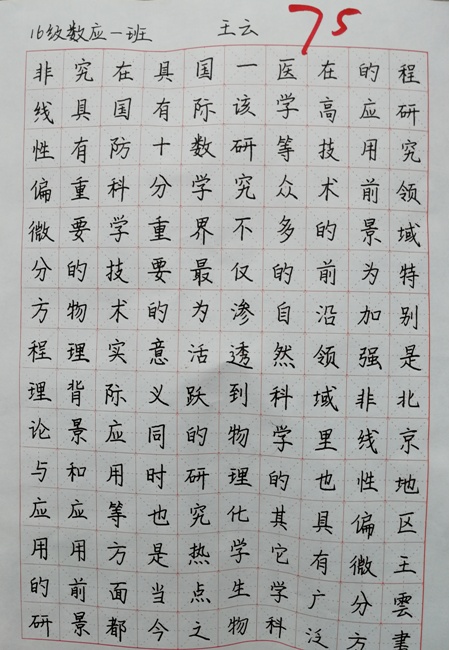 16级数应一班 王云 75
非线性偏微分方程理论与应用的研
究具有重要的物理背景和应用前景
在国防科学技术实际应用等方面都
具有十分重要的意义同时也是当今
国际数学界最为活跃的研究热点之
一该研究不仅渗透到物理化学生物
医学等众多的自然科学的其它学科
在高技术的前沿领域里也具有广泛
的应用前景为加强非线性偏微分方
程研究领域特别是北京地区王雲書